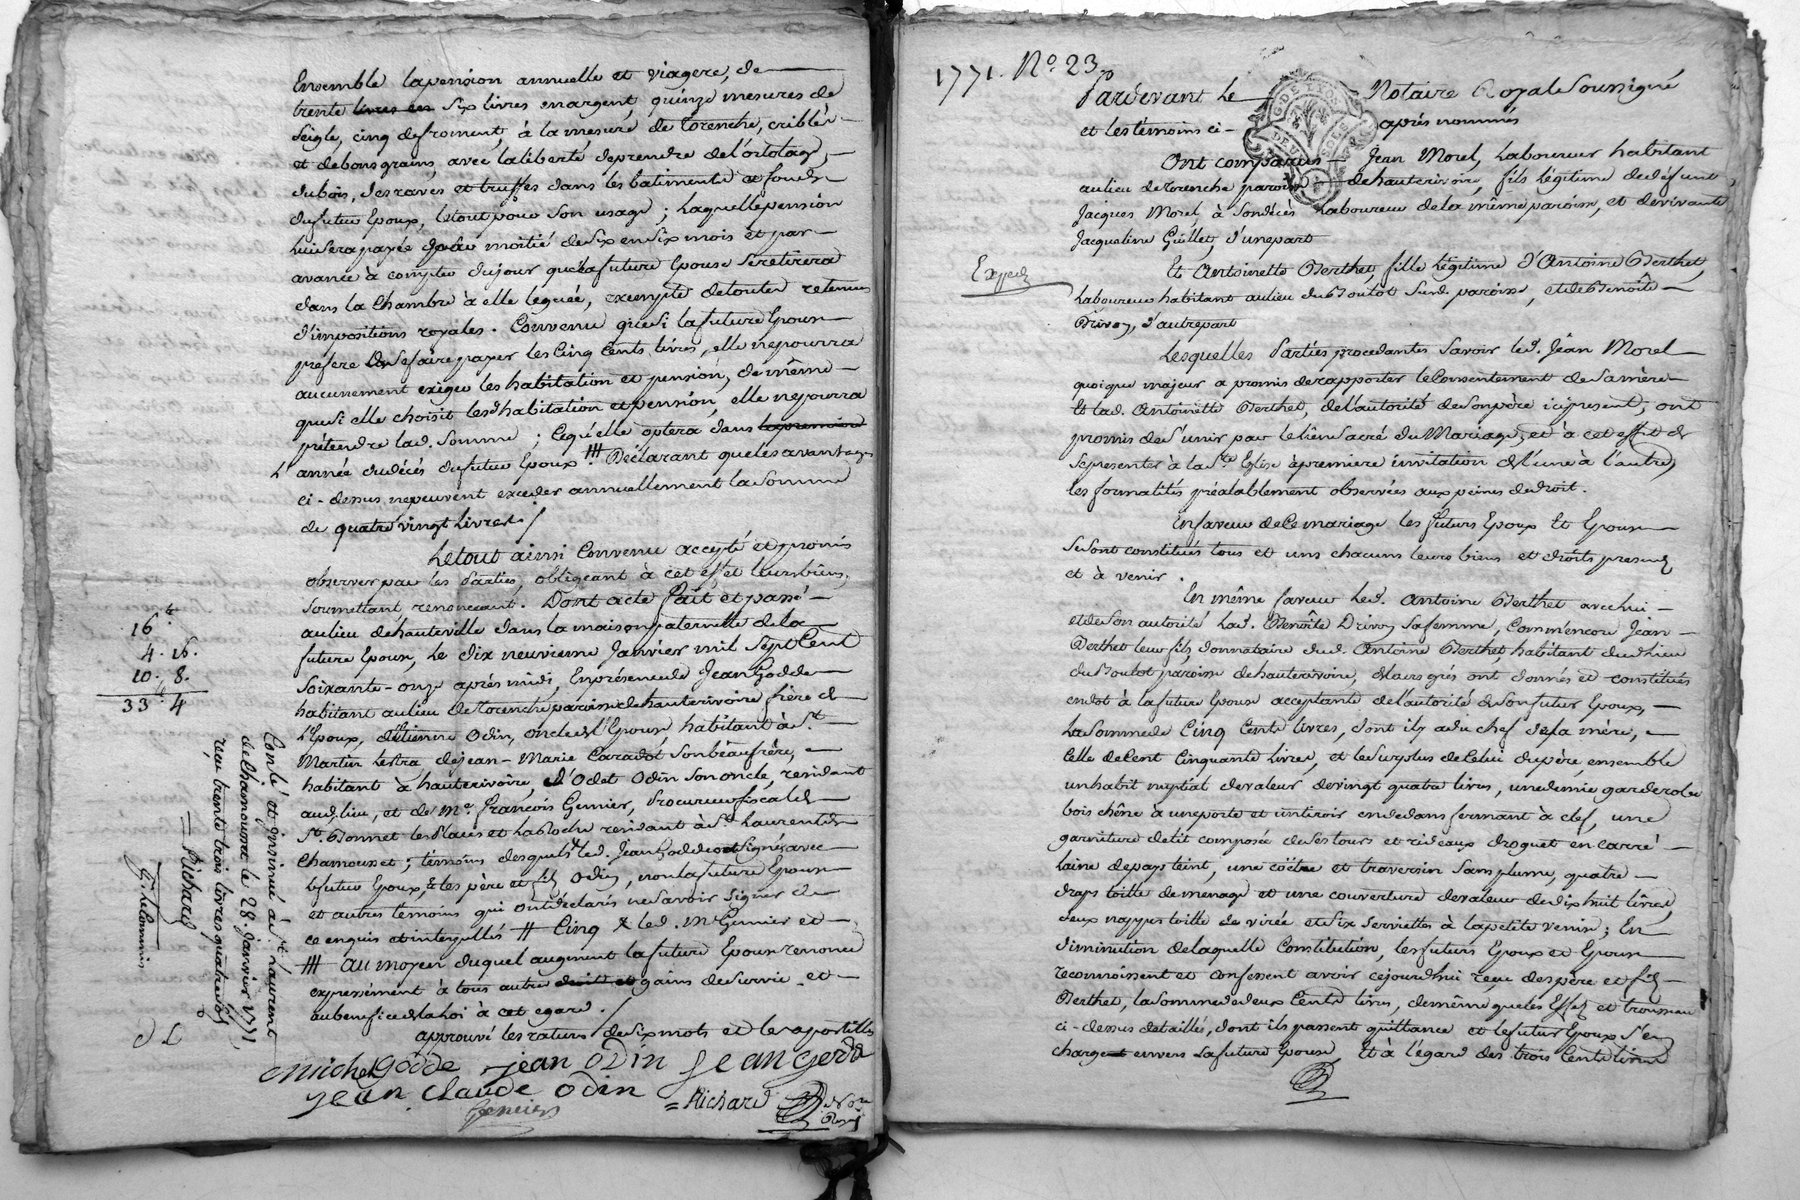 Ensemble la pension annuelle et viagere, de
trente livres en six livres en argent, quinze mesures de
seigle, cinq de froment, à la mesure de Lorenche, criblés
et de bons grains, avec la liberté de prendre de l'ortolage,
du bois, des raves et truffes dans les batiments et fonds
du futur Epoux, le tout pour son usage ; laquelle pension
lui sera payée par moitié de six en six mois et par
avance à compter du jour que la future Epouse se retirera
dans la chambre à elle leguée, exempte de toutes retenues
d'impositions royales. Convenu que si la future Epouse
préfere de se faire payer les cinq cents livres, elle ne pourra
aucunement exiger les habitation et pension, de même
que si elle choisit lesd. habitation et pension, elle ne pourra
prétendre lad. somme ; ce qu'elle optera dans la premiere
L année du décés du futur Epoux # Déclarant que les avantages
ci-dessus ne peuvent exceder annuellement la somme
de quatre vingt livres ./
Le tout ainsi convenu accepté et promis
observer par les Parties, obligeant à cet effet leurs biens,
soumettant, renonceant. Dont acte fait et passé
au lieu de hauteville dans la maison paternelle de la
future Epouse, le dix neuvieme Janvier mil sept cent
soixante-onze après midi, En présence de Jean Godde
habitant au lieu de Lorenche paroisse de hauterivoire frère de
l'Epoux, d'Etienne Odin, oncle de l'Epouse habitant à St.
Martin Lestra de Jean-Marie Caradot son beaufrère,
habitant à hauterivoire, d'Odet Odin son oncle, residant
aud. lieu, et de Me. François Gernier, Procureur fiscal de
St. Bonnet les Places et la Roche residant à St. Laurent de
Chamousset ; témoins desquels led. Jean Godde ont signé avec
le futur Epoux, & les père et fils Odin, non la future Epouse
et autres temoins qui ont declarés ne savoir signer de
ce enquis et interpellés # Cinq X led. Mc Gernier et
# au moyen duquel augment la future Epouse renonce
expressément à tous autres droits et gains de survie et
au benefice de la loi à cet egard ./
approuvé les ratures de six mots et les apostilles
michel godde jean odin jean gorde
jean claude odin
Gernier = Richard
16
4. 16.
10. 8.
33. 4
Conlé et insinué à St. Laurent
de Chamousset le 28. janvier 1771
reçu trente trois livres quatre sols
= Richard
1771. No. 23.
Pardevant Le Notaire Royal Soussigné
et les témoins ci- après nommés
Ont comparus Jean Morel, laboureur habitant
au lieu de Lorenche paroisse de hauterivoire, fils légitime de défunt
Jacques Morel, à son décès laboureur de la même paroisse, et de vivante
Jacqueline Guillet, d'une part
Et Antoinette Berthet, fille légitime d'Antoine Berthet,
Exped.
laboureur habitant au lieu du Boulot susd. paroisse, et de Benoîte
Drivon, d'autre part
Lesquelles Parties procedantes savoir led. Jean Morel
quoique majeur a promis de rapporter le consentement de sa mère
Et lad. Antoinette Berthet, de l'autorité de son père ici present, ont
promis de s'unir par le lien sacré du Mariage, et à cet effet de
se presenter à la Ste. Eglise à premiere invitation de l'une à l'autre,
les formalités préalablement observées aux peines de droit.
En faveur de ce mariage les futurs Epoux Et Epouse
se sont constitués tous et uns chacuns leurs biens et droits presents
et à venir.
En même faveur led. Antoine Berthet avec lui
et de son autorité lad. Benoîte Drivon sa femme, comm'encore Jean
Berthet leur fils, donnataire dud. Antoine Berthet, habitant dud. lieu
du Boulot paroisse de hauterivoire, de leurs grés ont donnés et constitués
en dot à la future Epouse acceptante de l'autorité de son futur Epoux,
La somme de Cinq Cents livres, dont il y a du chef de sa mère,
celle de Cent Cinquante Livres, et le surplus de celui du père, ensemble
un habit nuptial de valeur de vingt quatre livres, une demie garderobe
bois chêne à une porte et un tiroir en dedans fermant à clef, une
garniture de lit composée de ses tours et rideaux droguet en carré
laine de pays teint, une coëtre et traversin sans plume, quatre
draps toille de menage et une couverture de valeur de dix huit livres,
deux nappes toille de virée et six serviettes à la petite venise ; En
diminution de laquelle Constitution, les futurs Epoux et Epouse
reconnoissent et confessent avoir cejourd'hui reçu des père et fils
Berthet, la somme de deux Cents livres, de même que les Effets et trousseau
ci-dessus detaillés, dont ils passent quittance et le futur Epoux s'en
charge envers la future Epouse, Et à l'égard des trois Cents livres